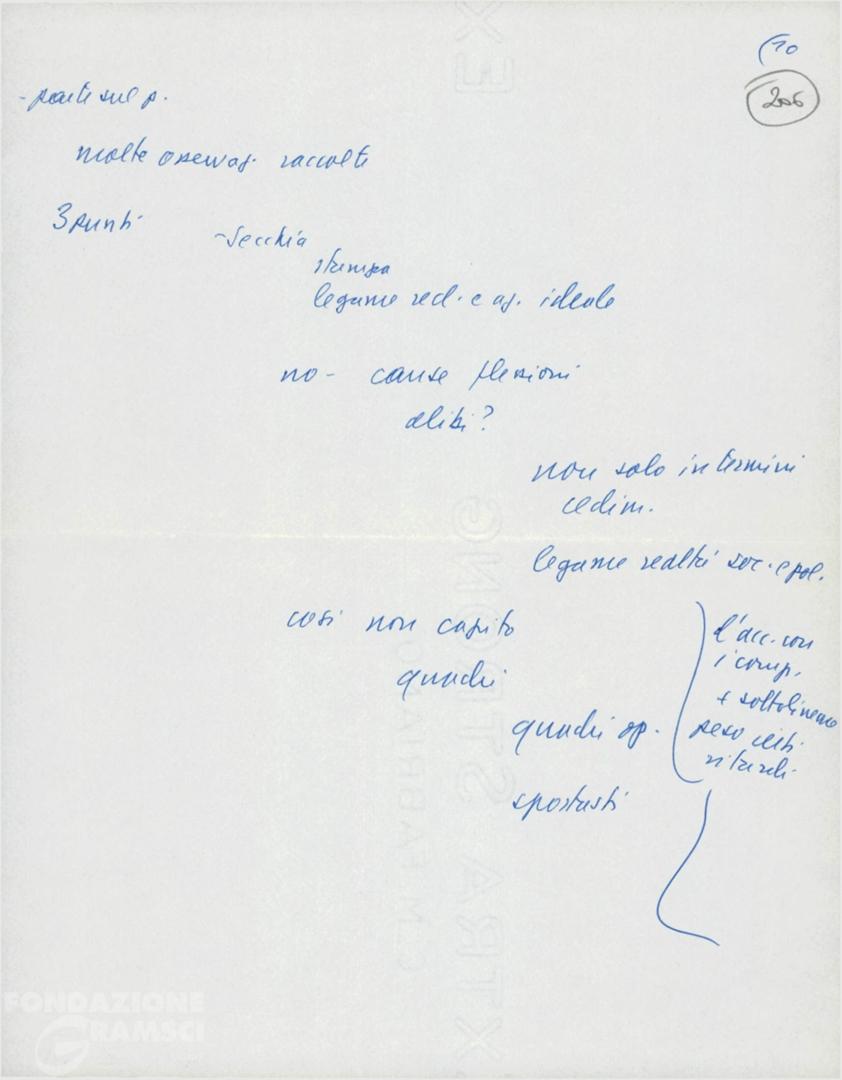 (10
206
- parte sul p.
molte osservaz. raccolte
3 punti
- Secchia
stampa
legame red. e az. ideale
no - cause flessioni
alibi?
non solo in termini
cedim.
legame realtà soc. e pol.
così non capito
quadri
quadri op.
spostati
d'acc. con
i comp.
+ sottolineare
peso certi
ritardi
EXTRA STRONG
C.M. FABRIANO
EX
FONDAZIONE
GRAMSCI